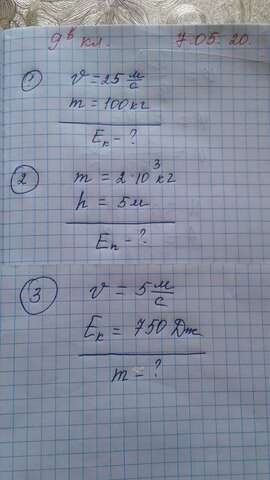 9в кл. 7.05.20.
1 v = 25 м/с
m = 100 кг
Eк - ?
2 m = 2·10³ кг
h = 5 м
Eп - ?
3 v = 5 м/с
Eк = 750 Дж
m - ?